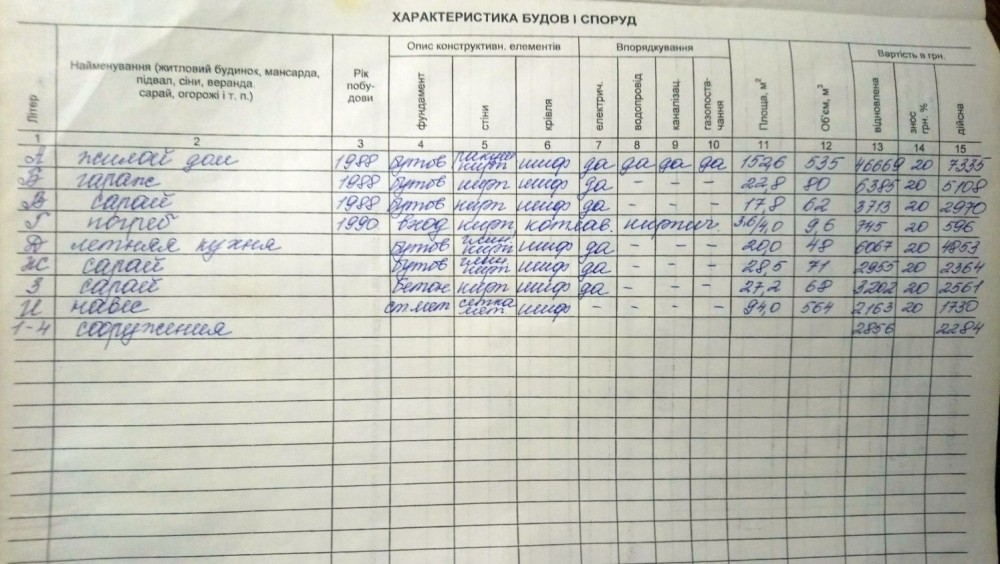 ХАРАКТЕРИСТИКА БУДОВ І СПОРУД
Літер Найменування (житловий будинок, мансарда, підвал, сіни, веранда сарай, огорожі і т. п.) Рік побу-дови Опис конструктивн. елементів Впорядкування Площа, м² Об'єм, м³ Вартість в грн.
фундамент стіни крівля електрич. водопровід каналізац. газопоста-чання відновлена знос грн. % дійсна
1 2 3 4 5 6 7 8 9 10 11 12 13 14 15
А жилой дом 1988 бутов ракуш кирп шиф да да да да 152,6 535 46669 20 7335
Б гараж 1988 бутов кирп шиф да - - - 22,8 80 6385 20 5108
В сарай 1988 бутов кирп шиф да - - - 17,8 62 3713 20 2970
Г погреб 1990 вход кирп котлов. кирпич. 3,6/4,0 9,6 745 20 596
Д летняя кухня бутов кирп шиф да - - - 20,0 48 6067 20 4853
Ж сарай бутов кирп шиф да - - - 28,5 71 2955 20 2364
З сарай бетон кирп шиф да - - - 27,2 68 3202 20 2561
И навес ст.мет сетка мет шиф - - - - 94,0 564 2163 20 1730
1-4 сооружения 2856 2284